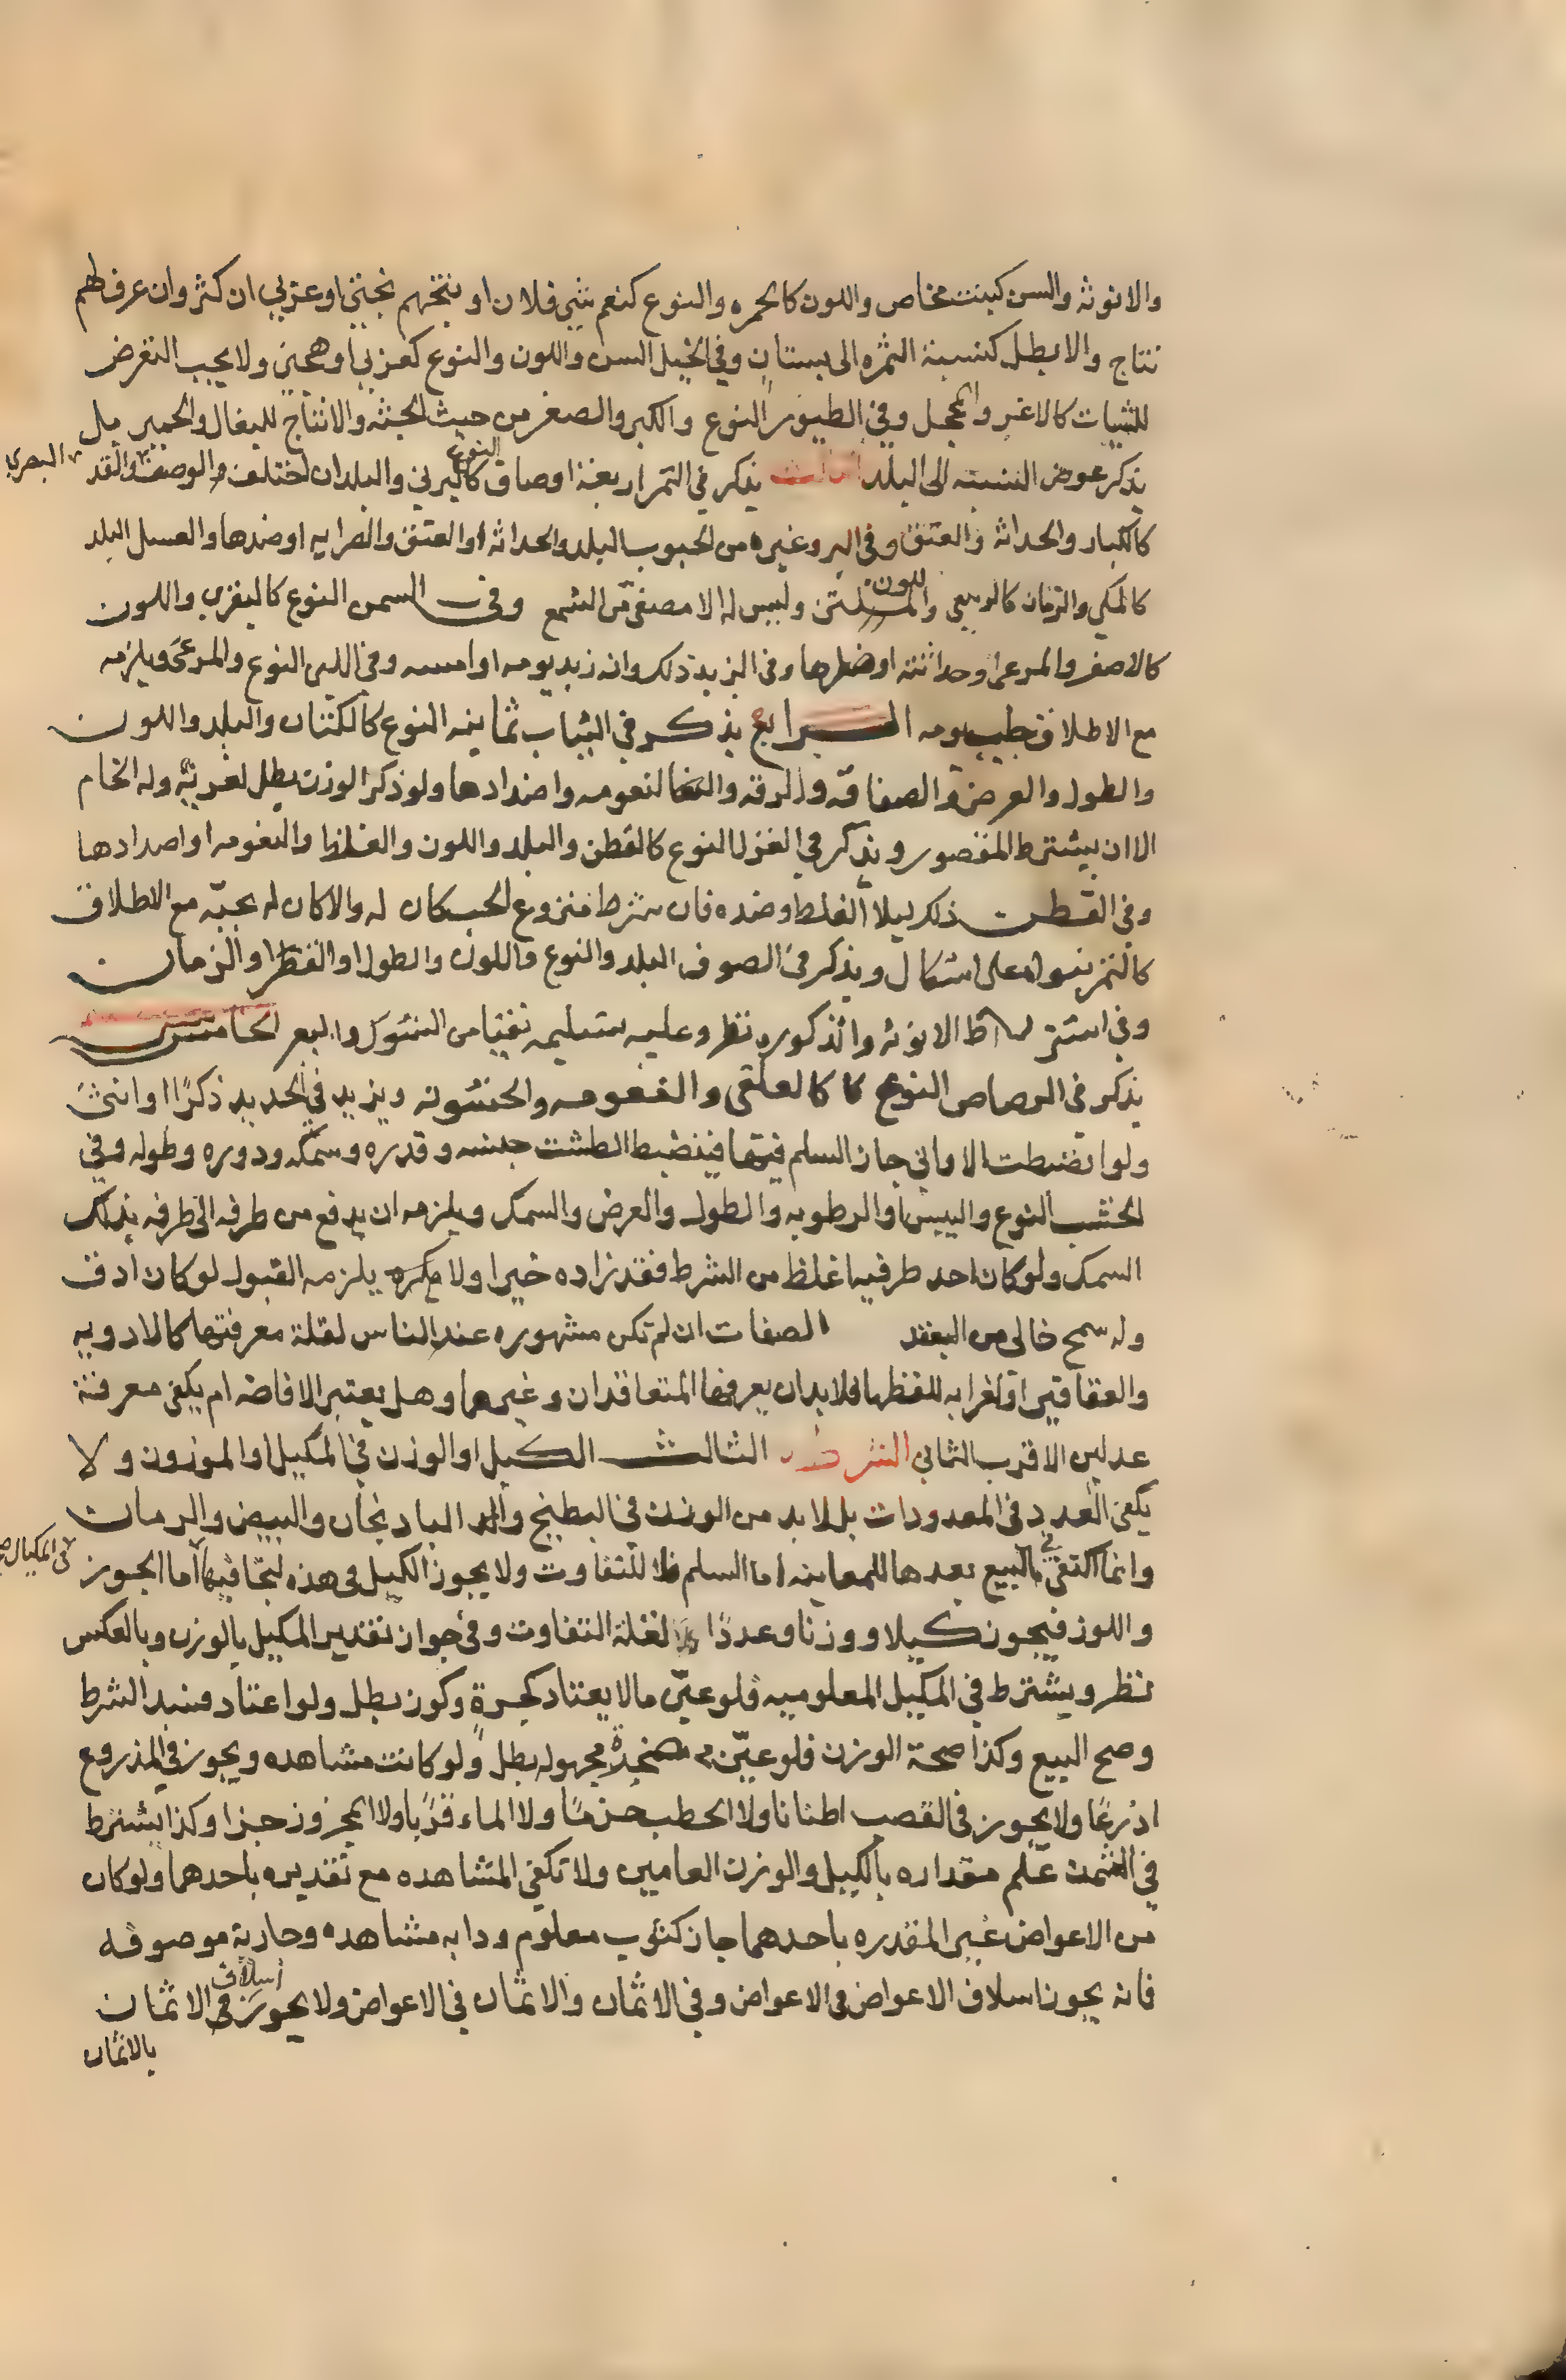 والانوثه والسن كبنت مخاض واللون كالحمره والنوع كنعم بنى فلان او نتجهم بختى او عربي ان كثر وان عرف لهم
نتاج والا بطل كنسبة الثمره الى بستان وفي الخيل السن واللون والنوع كعربي او هجين ولا يجب التعرض
للشيات كالاغر والمحجل وفي الطيور النوع والكبر والصغر من حيث الجثه والانتاج للبغال والحمير بل
يذكر عوض النسبه الى البلد الثالث يذكر في التمر اربعة اوصاف النوع كالبرني والبلد ان اختلف والوصف والقد البصري
كالكبار والحداثه والعتق وفى البر وغيره من الحبوب البلد والحداثه او العتق والصرابه او ضدها والعسل البلد
كالمكي والزمان كالربيعي واللون وليس له الا مصفى من الشمع وفى السمن النوع كالبقري واللون
كالاصفر والمرعى وحداثته او ضدها وفى الزبد ذلك وانه زبد يومه او امسه وفى اللبن النوع والمرعى ويلزمه
مع الاطلاق حليب يومه الرابع يذكر في الثياب ثمانيه النوع كالكتان والبلد واللون
والطول والعرض والصفاقه والرقه والنعومه واضدادها ولو ذكر الوزن بطل لغربته وله الخام
الا ان يشترط المقصور ويذكر في الغزل النوع كالقطن والبلد واللون والغلظ والنعومه او اضدادها
وفى القطن ذلك الا الغلظ وضده فان شرط منزوع الحب كان له والا كان له بحبّه مع الاطلاق
كالتمر بنواه على اشكال ويذكر في الصوف البلد والنوع واللون والطول او القصر والزمان
وفي اشتراط الانوثه والذكوره نظر وعليه تسليمه نقيا من الشوك والبعر الخامس
يذكر فى الرصاص النوع كالقلعى والنعومه والخشونه ويزيد في الحديد ذكرًا او انثى
ولو انضبطت الاواني جاز السلم فيها فيضبط الطشت جنسه وقدره وسمكه ودوره وطوله وفي
الخشب النوع واليبس او الرطوبه والطول والعرض والسمك ويلزمه ان يدفع من طرفه الى طرفه بذلك
السمك ولو كان احد طرفيه اغلظ من الشرط فقد زاده خيرا ولا يلزمه القبول لو كان ادق
وله سمح خالى من العقد الصفات ان لم تكن مشهوره عند الناس لقلة معرفتها كالادويه
والعقاقير او لغرابه لفظها فلا بد ان يعرفها المتعاقدان وغيرهما وهل يعتبر الافاضه ام يكفى معرفة
عدلين الاقرب الثاني الشرط الثالث الكيل او الوزن في المكيل او الموزون ولا
يكفى العدد فى المعدودات بل لا بد من الوزن في البطيخ والباذنجان والبيض والرمان
وانما اكتفى في البيع بعدها للمعاينه اما السلم فلا للتفاوت ولا يجوز الكيل فى هذه لتجافيها اما الجوز فى المكيال
واللوز فيجوز كيلا ووزنا وعددًا لقلة التفاوت وفى جواز تقدير المكيل بالوزن وبالعكس
نظر ويشترط في المكيل المعلوميه فلو عيّن مالا يعتاد كجرة وكوز بطل ولو اعتاد فسد الشرط
وصح البيع وكذا صحة الوزن فلو عيّن صنجة مجهوله بطل ولو كانت مشاهده ويجوز في المذروع
اذرعًا ولا يجوز فى القصب اطنانا ولا الحطب حزمًا ولا الماء قربا ولا المجزوز جزا وكذا يشترط
في الثمن علم مقداره بالكيل والوزن العامين ولا تكفي المشاهده مع تقديره باحدهما ولو كان
من الاعواض غير المقدره باحدهما جاز كثوب معلوم ودابه مشاهده وجارية موصوفه
فانه يجوز اسلاف الاعواض فى الاعواض وفي الاثمان والاثمان في الاعواض ولا يجوز اسلاف الاثمان
بالاثمان